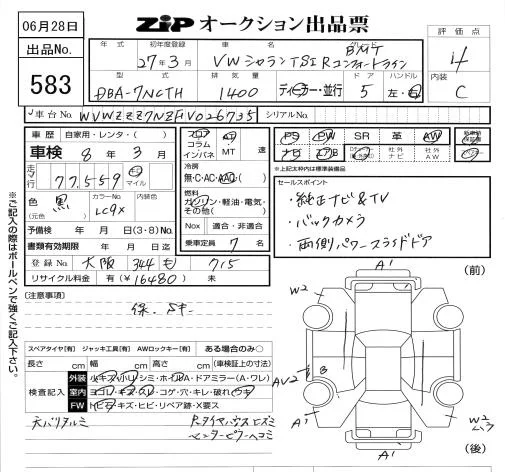 06月28日
ZiP オークション出品票
出品No.
583
年式 初年度登録 車名 グレード 評価点
27年3月 VWシャランTSI BMT Rコンフォートライン 4
型式 排気量 ドア ハンドル 内装
DBA-7NCTH 1400 ディーラー・並行 5 左・右 C
車台No. WVWZZZ7NZFV026735 シリアルNo.
車歴 自家用・レンタ・( )
車検 8年3月
走行 77.559 キロ マイル
色 黒 (元色) カラーNo. LC9X
予備検 年 月 日(3・8)No.
書類有効期限 年 月 日迄
登録No. 大阪 344 も 715
リサイクル料金 有(¥16480) 未
フロア AT
コラム MT 速
インパネ
冷房
無・C・AC・AAC
燃料
ガソリン・軽油・電気・その他( )
Nox 適合・非適合
乗車定員 7名
PS PW SR 革 AW
ナビ エアB 社外ナビ 社外AW
*上記太枠内は標準装備品
セールスポイント
・純正ナビ&TV
・バックカメラ
・両側パワースライドドア
[注意事項]
保. Sキー
スペアタイヤ[有] ジャッキ工具[有] AWロックキー[有] ある場合のみ○
長さ cm 幅 cm 高さ cm (車検証上の寸法)
検査記入
外装 小キズ・小凹・シミ・ホイルA・ドアミラー(A・ワレ)
室内 ヨゴレ・キズ・スレ・コゲ・穴・キレ・破れ・ウキ
FW トビ石・キズ・ヒビ・リペア跡・X要ス
天バリタルミ
センターピラーヘコミ
※ご記入の際はボールペンで強くご記入下さい。
(前)
A1
W2
W2
B
AV2
A1
W2
A1
(後)